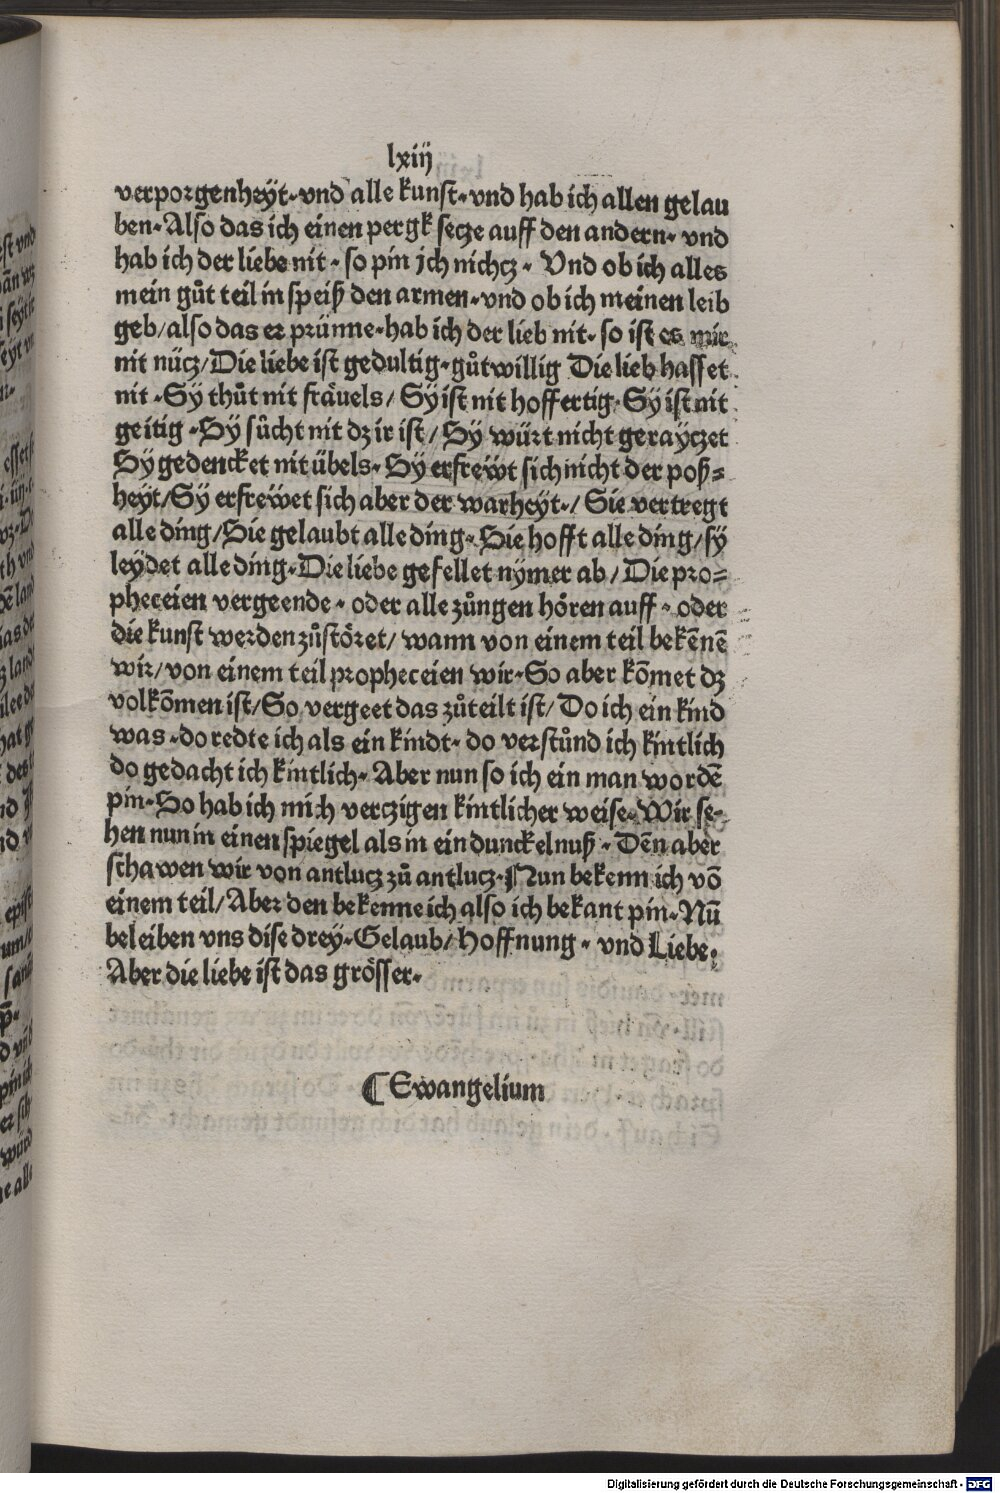 lxiij
verporgenheÿt·vnd alle kunst·vnd hab ich allen gelau
ben·Also das ich einen pergk secze auff den andern· vnd
hab ich der liebe nit· so pin jch nichcz · Vnd ob ich alles
mein gůt teil in speiß den armen·vnd ob ich meinen leib
geb/also das er prünne·hab ich der lieb nit· so ist es mir
nit nücz/Die liebe ist gedultig·gůtwillig Die lieb hasset
nit ·Sÿ thůt nit fräuels/ Sÿ ist nit hoffertig·Sÿ ist nit
geitig ·Sÿ sůcht nit dz ir ist/ Sÿ würt nicht gerayczet
Sÿ gedencket nit übels· Sÿ erfreẅt sich nicht der poß⸗
heyt/Sÿ erfreẅet sich aber der warheyt·/ Sie vertregt
alle ding/Sie gelaubt alle ding·Sie hofft alle ding/sÿ
leÿdet alle ding·Die liebe gefellet nÿmer ab/ Die pro⸗
pheceien vergeende· oder alle zůngen hören auff· oder
die kunst werden zůstöret/ wann von einem teil bekēnē
wir/von einem teil propheceien wir·So aber kōmet dz
volkōmen ist/So vergeet das zůteilt ist/ Do ich ein kind
was·do redte ich als ein kindt· do verstůnd ich kintlich
do gedacht ich kintlich· Aber nun so ich ein man wordē
pin·So hab ich mich verczigen kintlicher weise·Wir se⸗
hen nun in einen spiegel als in ein dunckelnuß · Dēn aber
schawen wir von antlucz zů antlucz·Nun bekenn ich vō
einem teil/Aber den bekenne ich also ich bekant pin·Nū
beleiben vns dise drey·Gelaub/Hoffnung· vnd Liebe·
Aber die liebe ist das grösser·
¶ Ewangelium
Digitalisierung gefördert durch die Deutsche Forschungsgemeinschaft - DFG